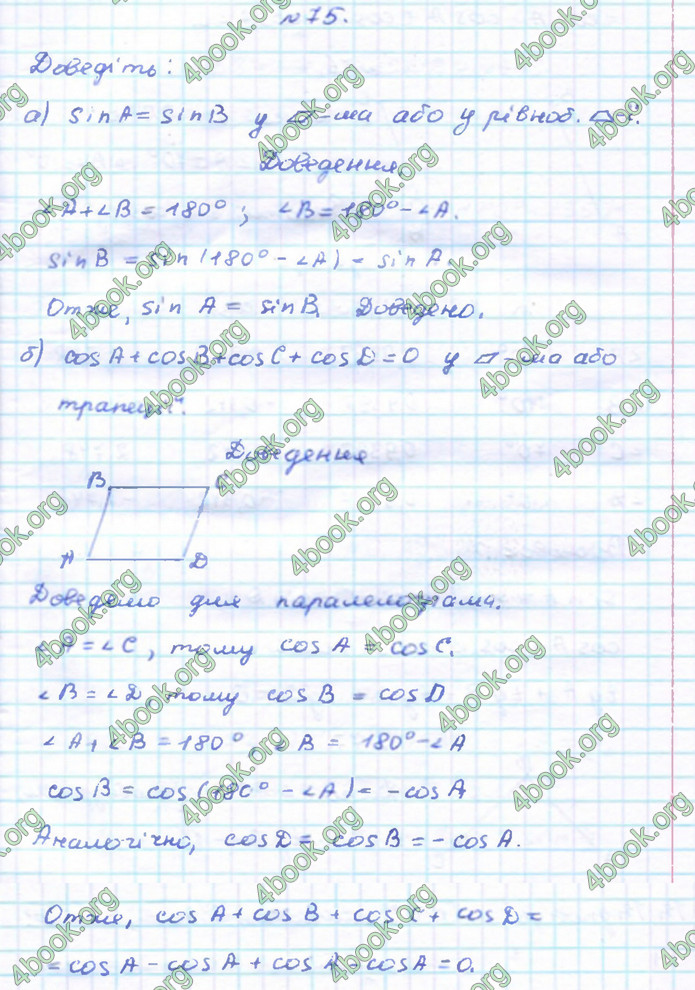 №75.
Доведіть:
а) sin A = sin B у ▱-ма або у рівноб.
Доведення
∠A + ∠B = 180°; ∠B = 180° - ∠A.
sin B = sin (180° - ∠A) = sin A.
Отже, sin A = sin B. Доведено.
б) cos A + cos B + cos C + cos D = 0 у ▱-ма або
трапеції.
Доведення
B C
A D
Доведемо для паралелограма.
∠A = ∠C, тому cos A = cos C.
∠B = ∠D, тому cos B = cos D
∠A + ∠B = 180°, ∠B = 180° - ∠A
cos B = cos (180° - ∠A) = - cos A
Аналогічно, cos D = cos B = - cos A.
Отже, cos A + cos B + cos C + cos D =
= cos A - cos A + cos A - cos A = 0.
4book.org